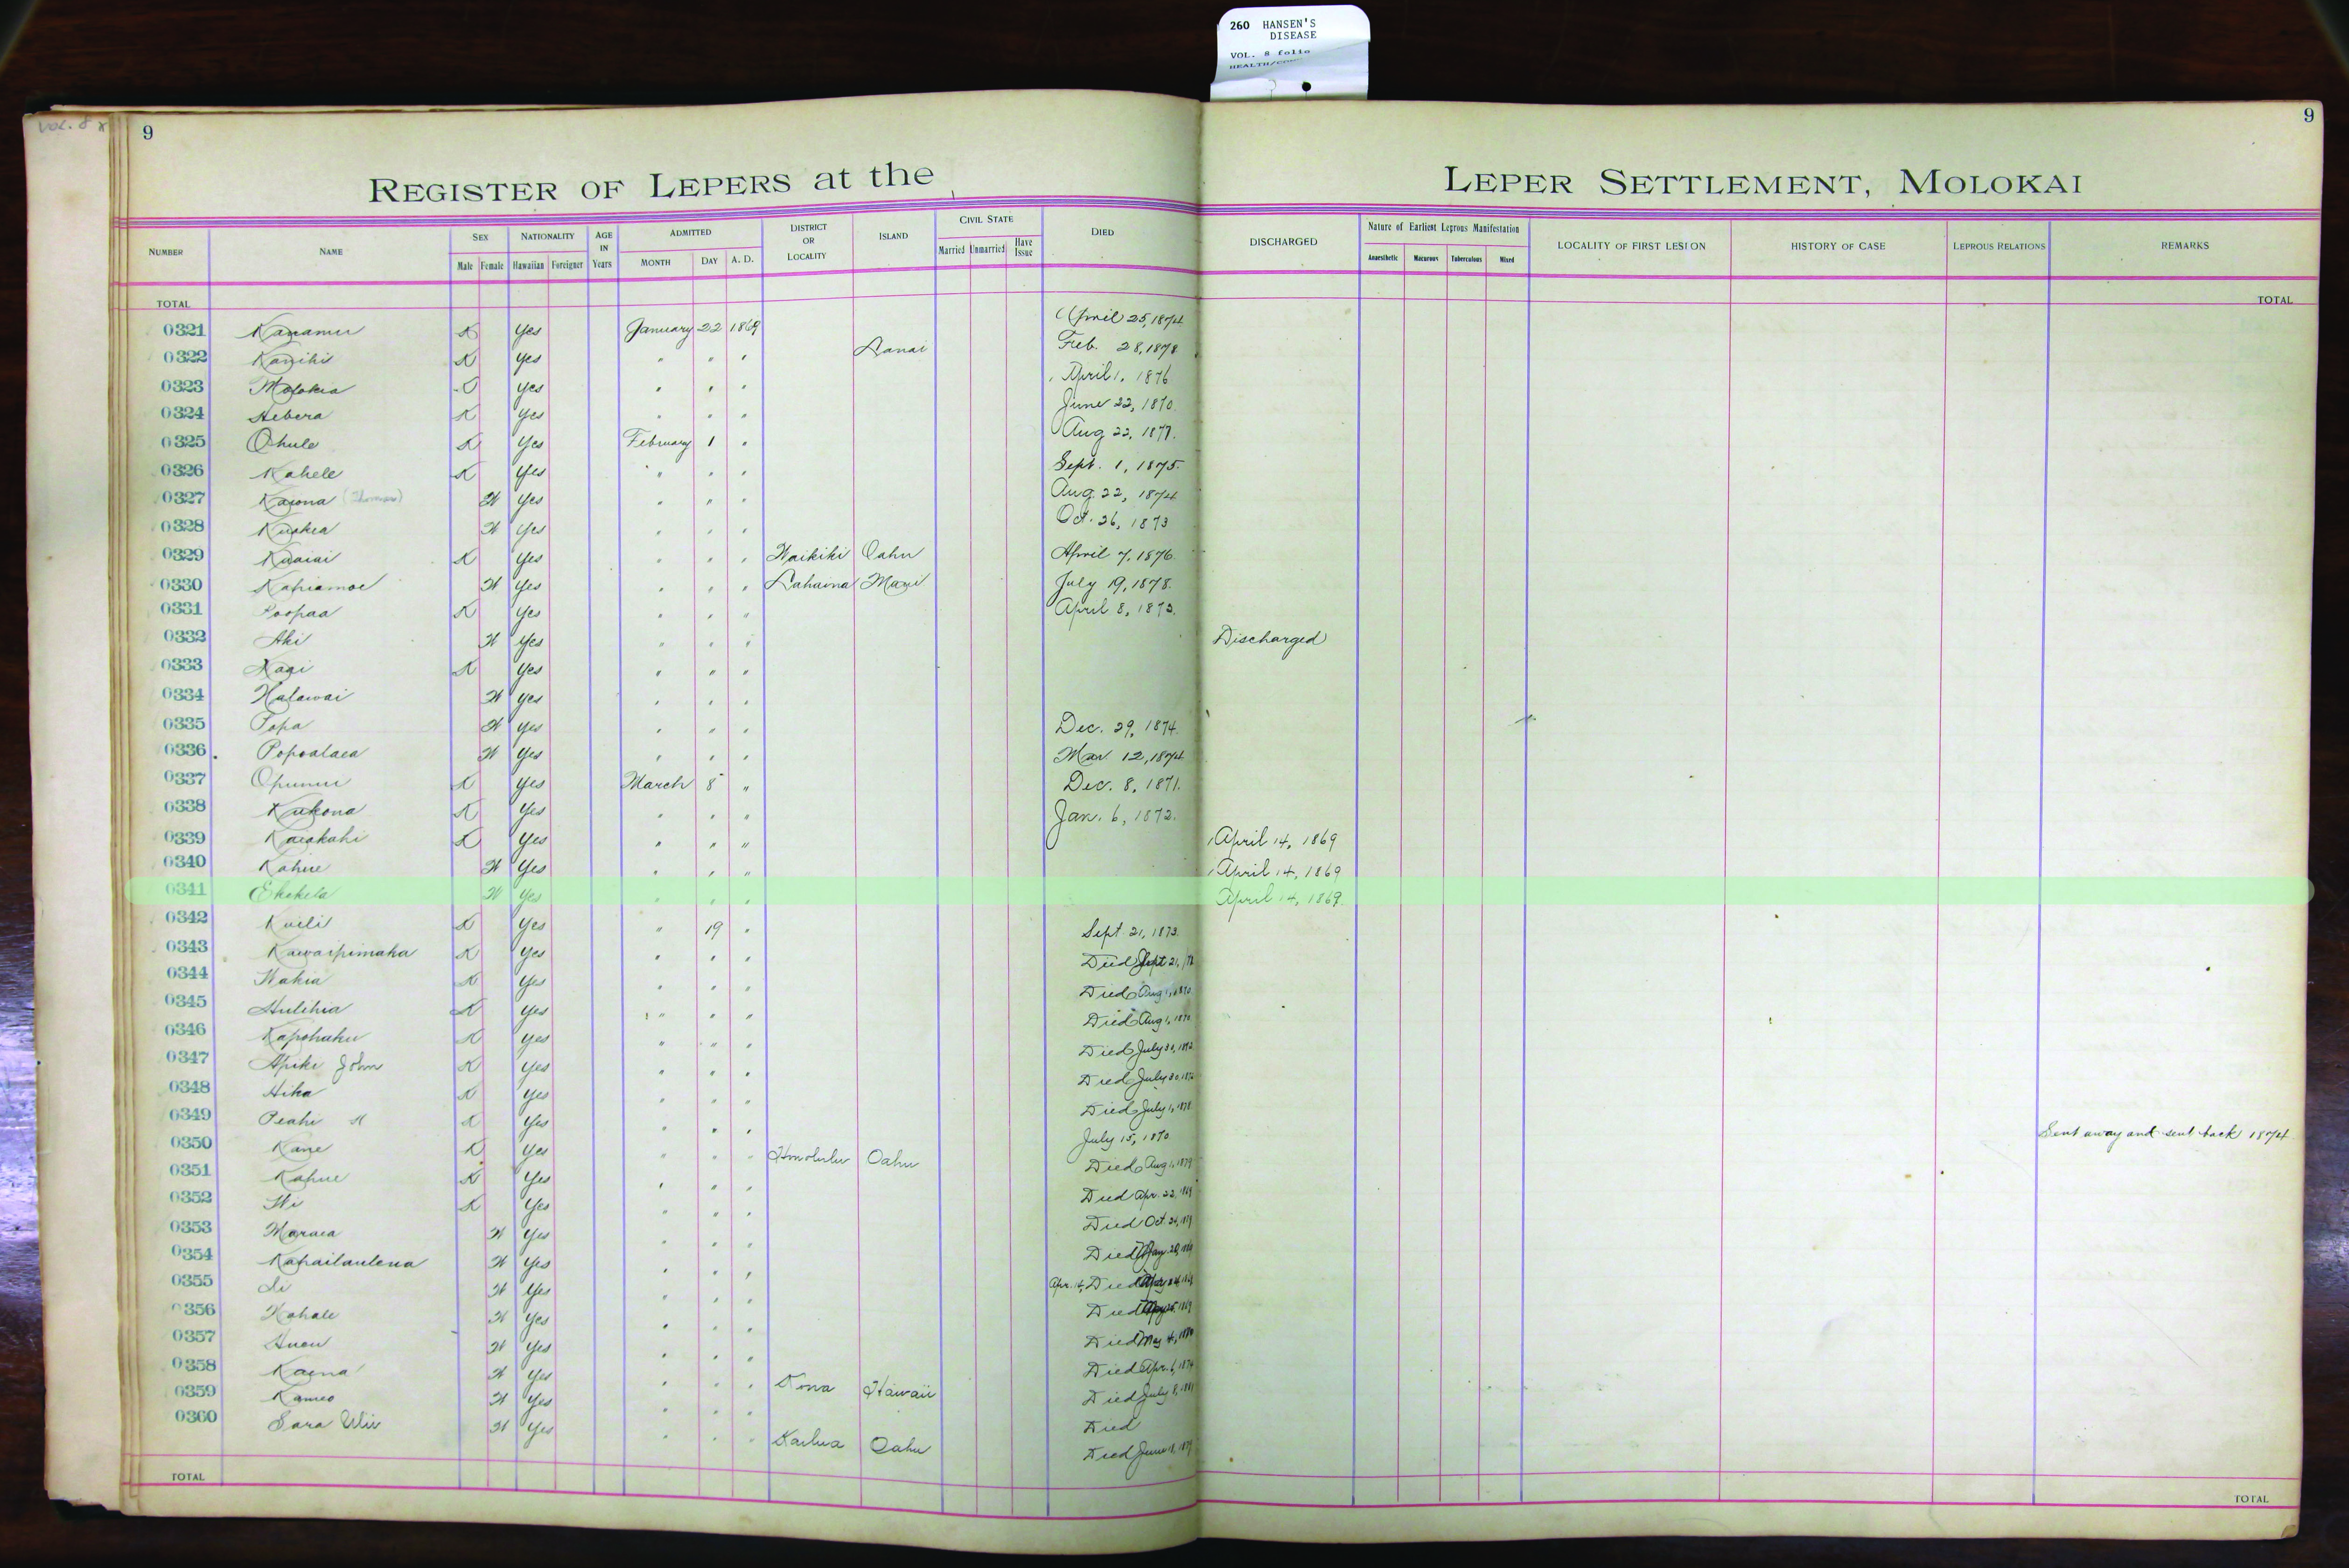 260 HANSEN'S
DISEASE
VOL. 8 folio
VOL. 8
9
9
REGISTER OF LEPERS at the LEPER SETTLEMENT, MOLOKAI
NUMBER NAME SEX Male Female NATIONALITY Hawaiian Foreigner AGE IN Years ADMITTED MONTH DAY A. D. DISTRICT OR LOCALITY ISLAND CIVIL STATE Married Unmarried Have Issue DIED DISCHARGED Nature of Earliest Leprous Manifestation Anaesthetic Macurous Tuberculous Mixed LOCALITY OF FIRST LESION HISTORY OF CASE LEPROUS RELATIONS REMARKS
TOTAL TOTAL
0321 Kanamu K Yes January 22 1869 April 25, 1874
0322 Kanihi K Yes " " " Lanai Feb. 28, 1878
0323 Molokia Yes " " " April 1, 1876
0324 Hebera K Yes " " " June 22, 1870
0325 Ohule K Yes February 1 " Aug 22, 1877
0326 Kahele K Yes " " " Sept. 1, 1875
0327 Kaiona (Thomas) W Yes " " " Aug. 22, 1874
0328 Kuakea W Yes " " " Oct. 26, 1873
0329 Kuaiai K Yes " " " Waikiki Oahu April 7, 1876
0330 Kahiamoe W Yes " " " Lahaina Maui July 19, 1878
0331 Poopaa K Yes " " " April 8, 1873
0332 Aki W Yes " " " Discharged
0333 Kagi K Yes " " "
0334 Halawai W Yes " " "
0335 Popa W Yes " " " Dec. 29, 1874
0336 Popoalaea W Yes " " " Mar 12, 1874
0337 Opunui K Yes March 8 " Dec. 8, 1871
0338 Kukona K Yes " " " Jan. 6, 1872
0339 Kaiakahi K Yes " " " April 14, 1869
0340 Kahue W Yes " " " April 14, 1869
0341 Ekekela W Yes " " " April 14, 1869
0342 Kuili K Yes " 19 " Sept. 21, 1873
0343 Kawaipimaka K Yes " " " Died Sept 21,
0344 Wakia K Yes " " " Died Aug 1, 1870
0345 Hulihia K Yes " " " Died Aug 1, 1870
0346 Kapohaku K Yes " " " Died July 30, 1872
0347 Apiki John K Yes " " " Died July 30, 1872
0348 Hika K Yes " " " Died July 1, 1878
0349 Peahi K Yes " " " July 15, 1870 Sent away and sent back 1874
0350 Kane K Yes " " " Honolulu Oahu Died Aug 1, 1879
0351 Kahue K Yes " " " Died Apr. 22, 1869
0352 Wi K Yes " " " Died Oct. 24,
0353 Maraea W Yes " " " Died
0354 Kahailaulena W Yes " " " Apr. 14, Died
0355 Li W Yes " " " Died
0356 Kahale W Yes " " " Died May 4,
0357 Auou W Yes " " " Died Apr. 6, 1874
0358 Kaena W Yes " " " Kona Hawaii Died July 8, 1881
0359 Kameo W Yes " " " Died
0360 Sara Wii W Yes " " " Kailua Oahu Died June 18, 1879
TOTAL TOTAL